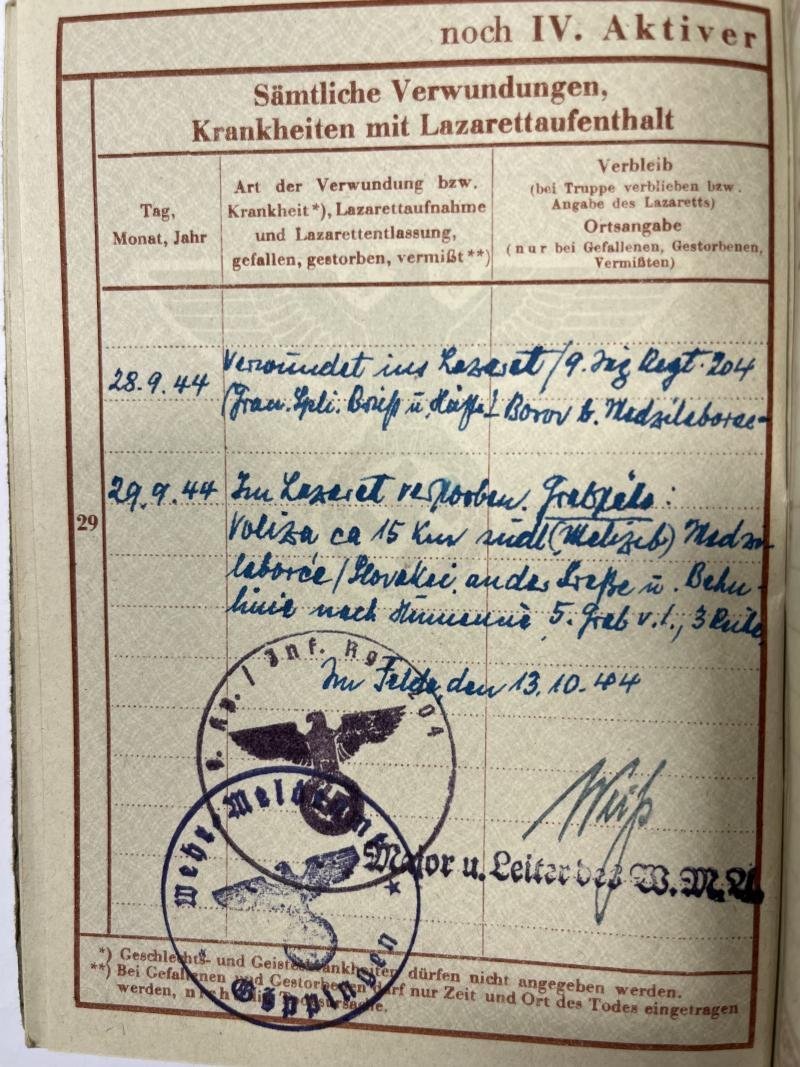 noch IV. Aktiver
Sämtliche Verwundungen,
Krankheiten mit Lazarettaufenthalt
Tag,
Monat, Jahr
Art der Verwundung bzw.
Krankheit*), Lazarettaufnahme
und Lazarettentlassung,
gefallen, gestorben, vermißt**)
Verbleib
(bei Truppe verblieben bzw.
Angabe des Lazaretts)
Ortsangabe
(nur bei Gefallenen, Gestorbenen,
Vermißten)
28.9.44
Verwundet ins Lazarett / 9. Jäg Regt. 204
(Gran. Spli. Brust u. Hüfte! Borov b. Medzilaborce
29
29.9.44
Im Lazarett verstorben.
Voliza ca 15 Km südl Medzi-
laborce / Slovakei, an der Straße u. Bahn-
linie nach Humenne, 5. Grab v. l., 3 Reihe
Im Felde, den 13.10.44
Kp. / Inf. Rgt. 204
Weiß
Major u. Leiter des W. M. A.
Wehr-Meldeamt
Göppingen
*) Geschlechts- und Geisteskrankheiten dürfen nicht angegeben werden.
**) Bei Gefallenen und Gestorbenen darf nur Zeit und Ort des Todes eingetragen
werden, nicht die Todesursache.